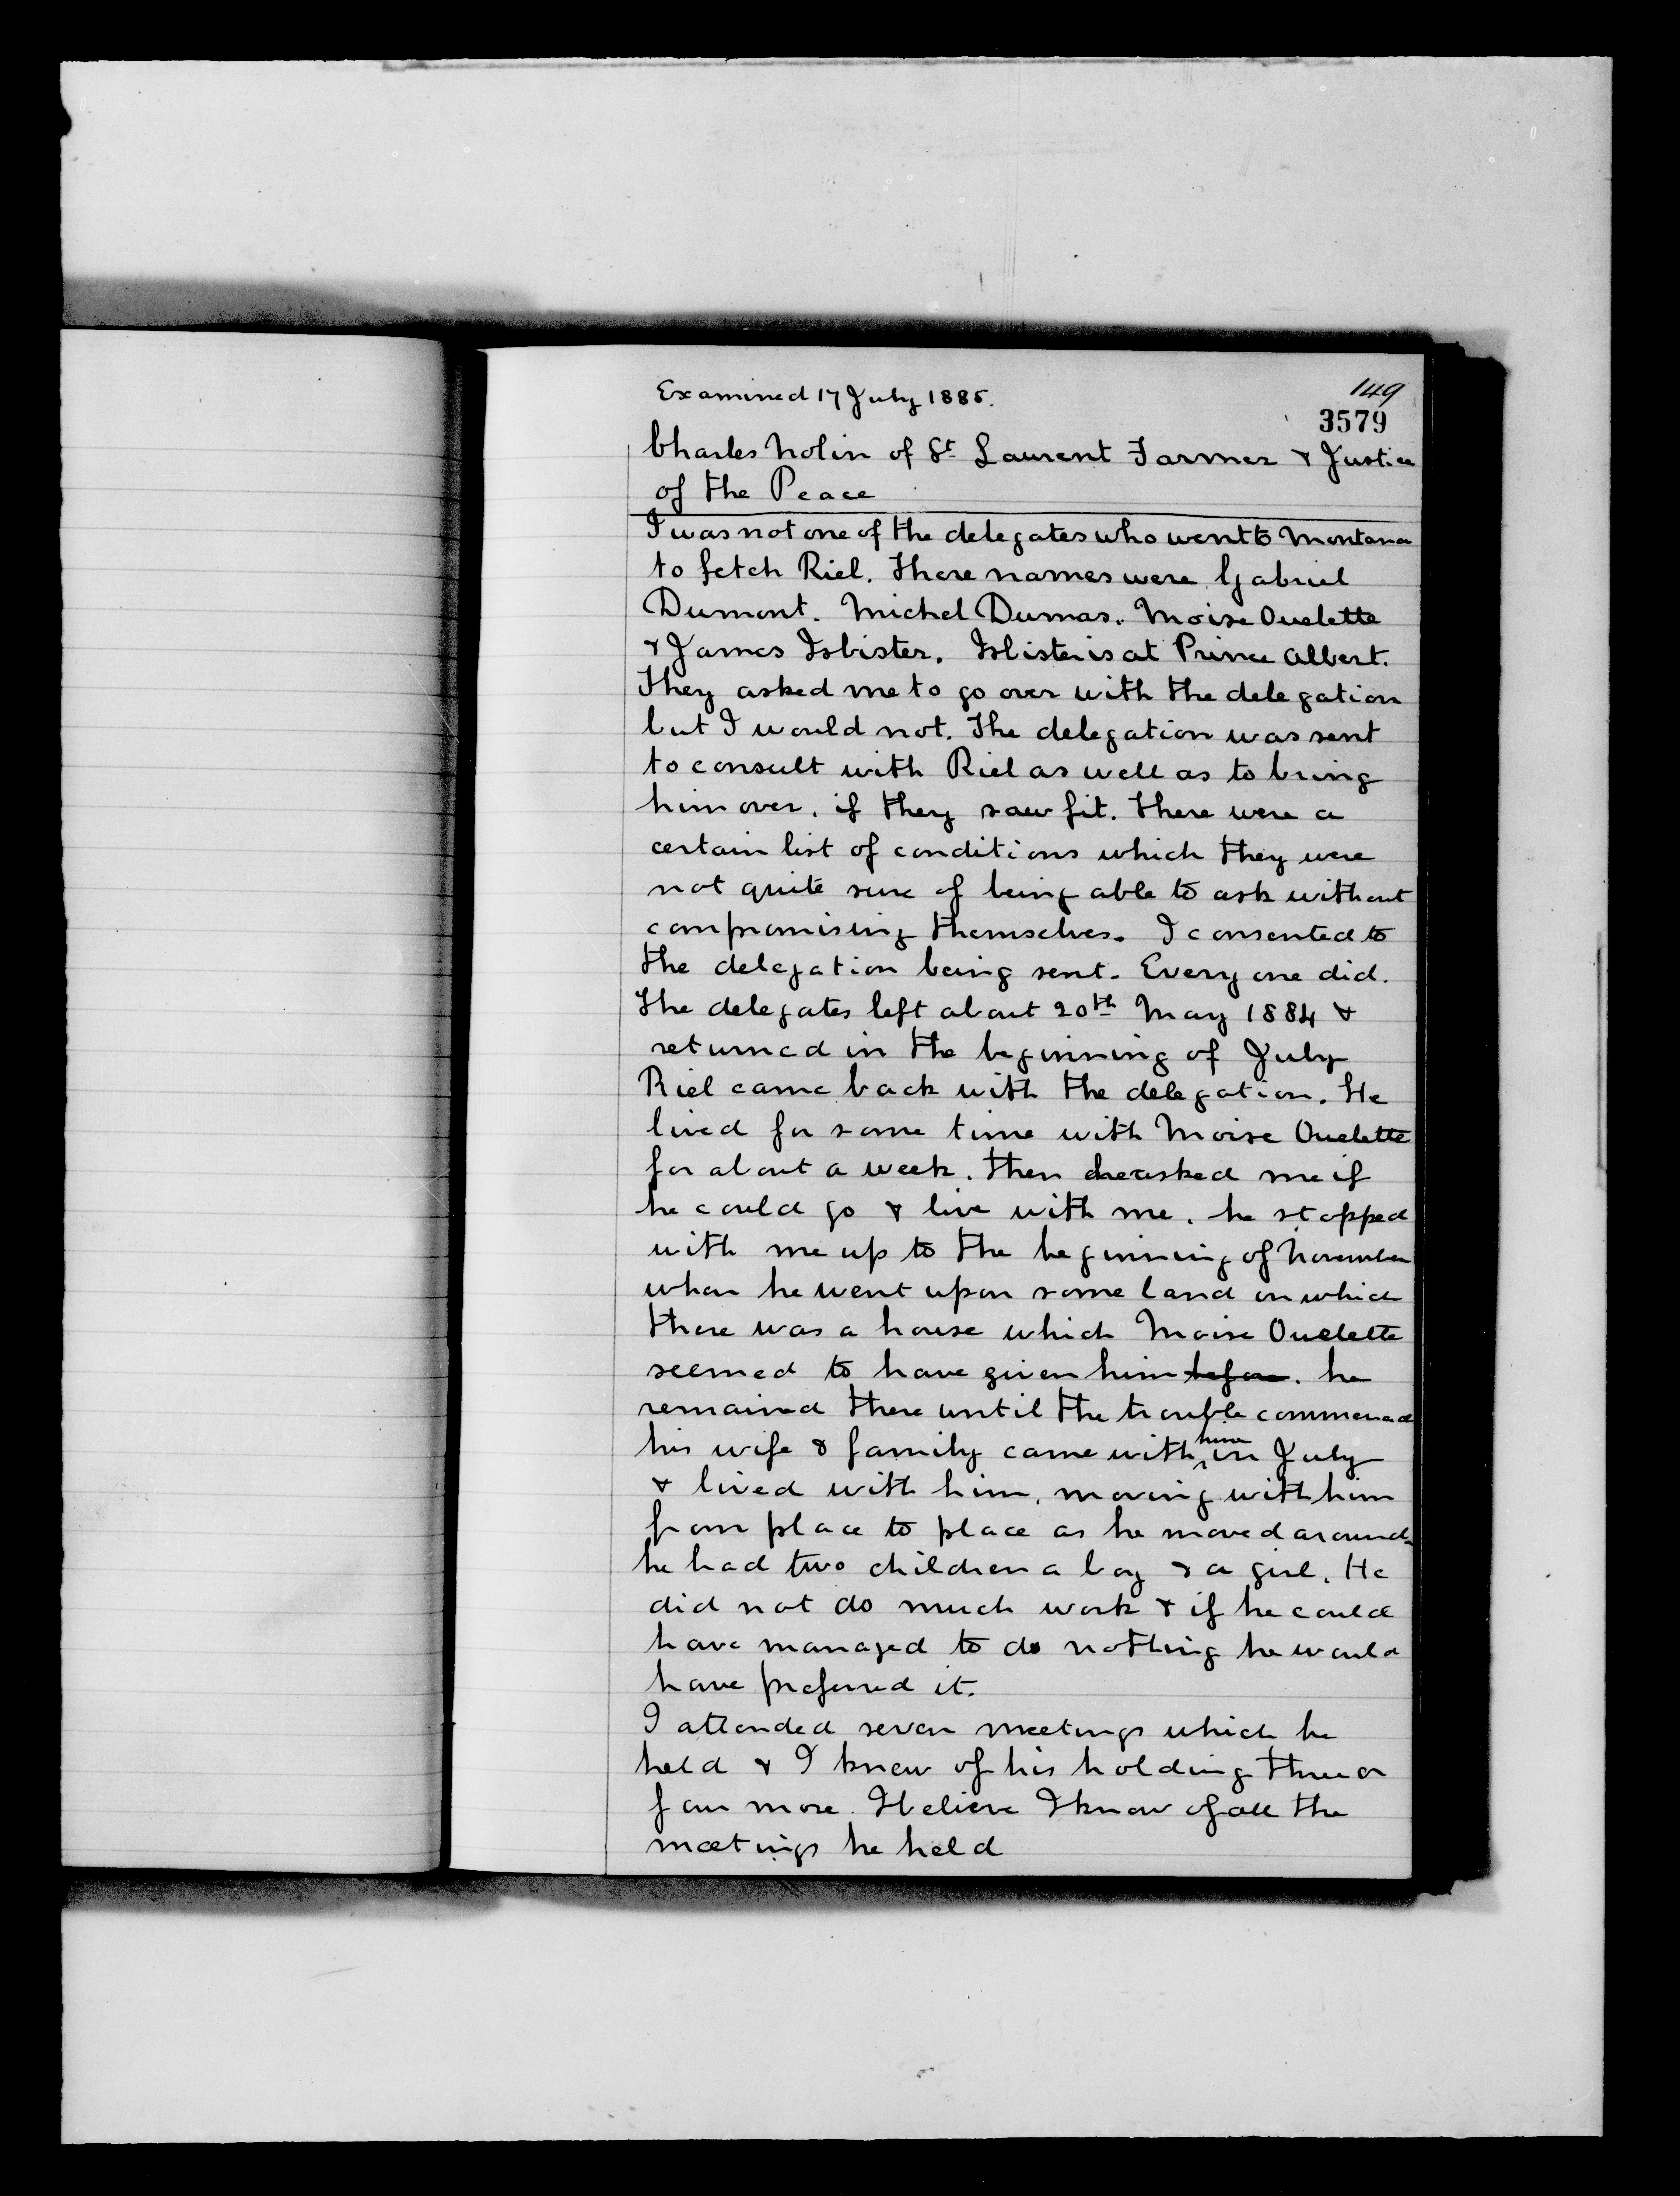 Examined 17 July 1885.
149
3579
Charles Nolin of St Laurent Farmer & Justice
of the Peace
I was not one of the delegates who went to Montana
to fetch Riel. There names were Gabriel
Dumont. Michel Dumas. Moise Ouelette
& James Isbister. Isbister is at Prince Albert.
They asked me to go over with the delegation
but I would not. The delegation was sent
to consult with Riel as well as to bring
him over, if they saw fit. There were a
certain list of conditions which they were
not quite sure of being able to ask without
compromising themselves. I consented to
the delegation being sent. Every one did.
The delegates left about 20th May 1884 &
returned in the beginning of July
Riel came back with the delegation. He
lived for some time with Moise Ouelette
for about a week. Then he asked me if
he could go & live with me. he stopped
with me up to the beginning of November
when he went upon some land on which
there was a house which Moise Ouelette
seemed to have given him before. he
remained there until the trouble commenced
his wife & family came with him in July
& lived with him, moving with him
from place to place as he moved around
he had two children a boy & a girl. He
did not do much work & if he could
have managed to do nothing he would
have preferred it.
I attended seven meetings which he
held & I knew of his holding three or
four more. I believe I know of all the
meetings he held